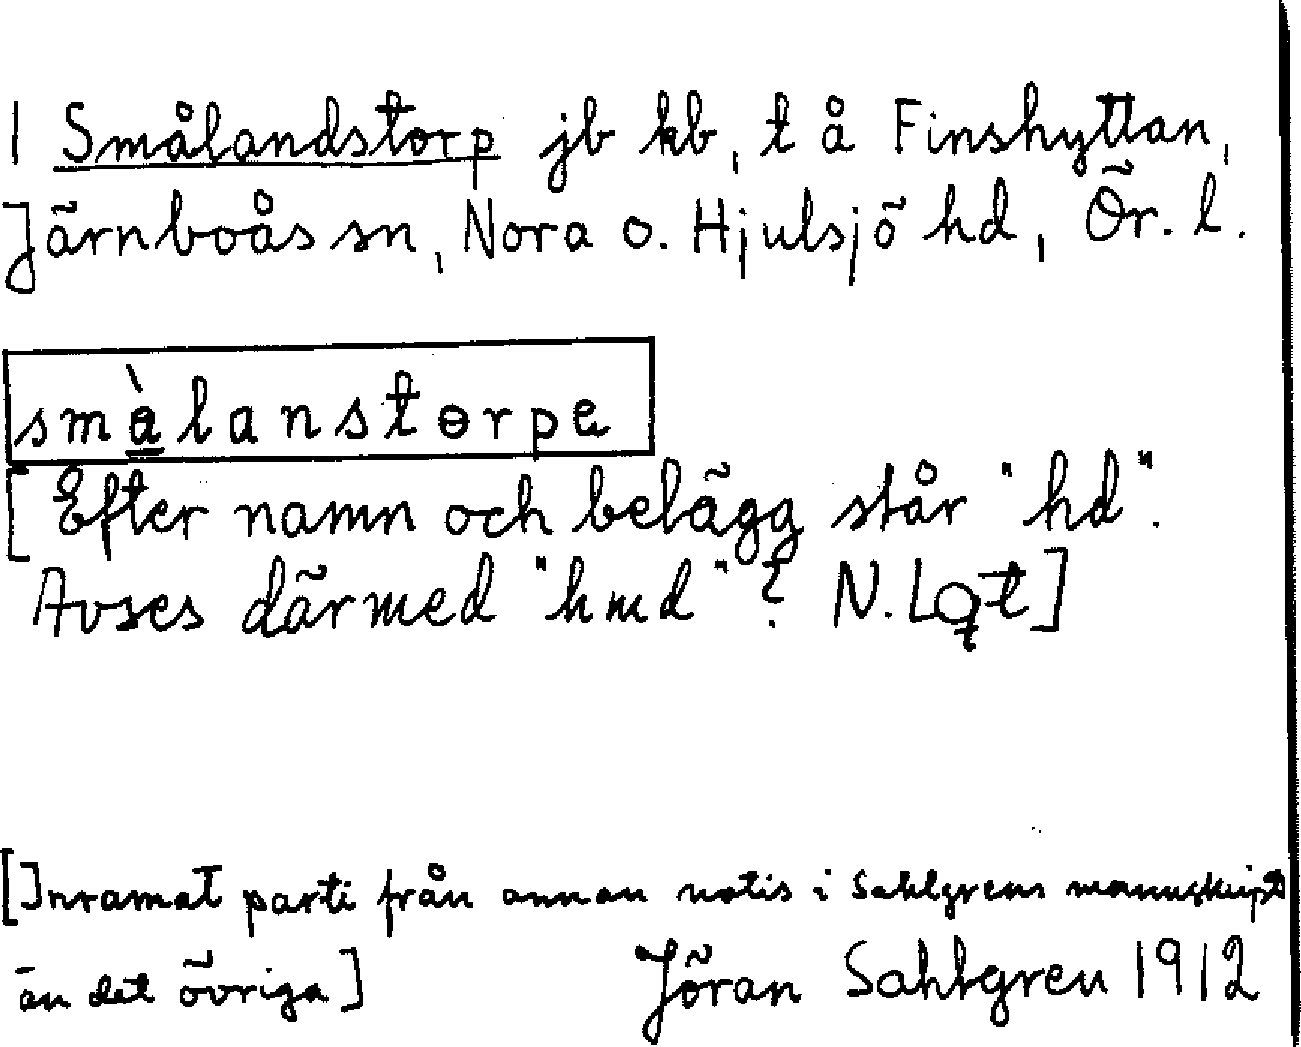 1 Smålandstorp jb kb, t å Finshyttan,
Järnboås sn, Nora o. Hjulsjö hd, Ör. l.
små̀lanstɵrpa
[Efter namn och belägg står "hd".
Avses därmed "hmd"? N. Lqt]
[Inramat parti från annan notis i Sahlgrens manuskript
än det övriga] Jöran Sahlgren 1912